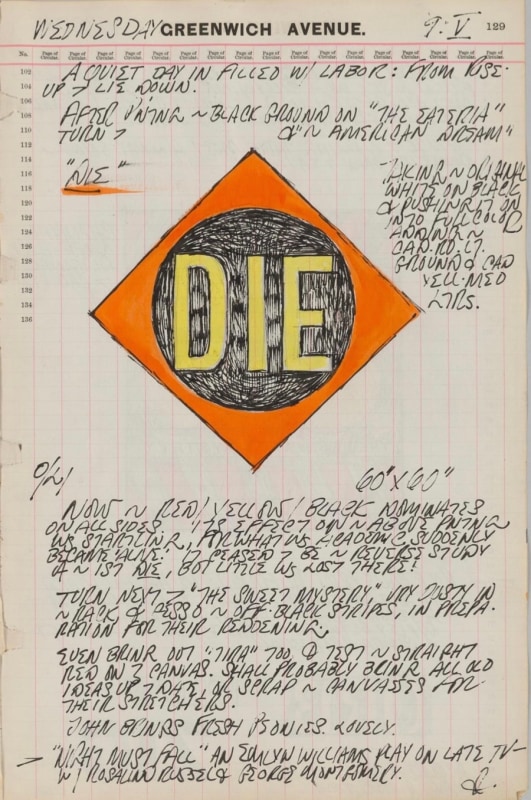 WEDNESDAY GREENWICH AVENUE. 9: V 129
No. Page of Circular. Page of Circular. Page of Circular. Page of Circular. Page of Circular. Page of Circular. Page of Circular. Page of Circular. Page of Circular. Page of Circular.
102
104
106
108
110
112
114
116
118
120
122
124
126
128
130
132
134
136
A QUIET DAY IN FILLED W/ LABOR: FROM RISE-
UP > LIE DOWN.
AFTER P'NTNG ~ BLACK GROUND ON "THE EATERIA"
TURN > & "~ AMERICAN DREAM"
"DIE"
TAKING ~ ORIGINAL
WHITE ON BLACK
& PUSHING IT ON
INTO FULL COLOR
ADDING ~
CAD. RD. LT.
GROUND & CAD
YELL. MED
LTRS.
DIE
O/L/ 60" X 60"
NOW ~ RED/ YELLOW/ BLACK DOMINATES
ON ALL SIDES. ITS EFFECT ON ~ ABOVE PNTNG
WS STARTLING, FOR WHAT WS ACADEMIC SUDDENLY
BECAME 'ALIVE'. IT CEASED > BE ~ REVERSE STUDY
OF ~ 1ST DIE, BUT LITTLE WS LOST THERE!
TURN NEXT > "THE SWEET MYSTERY," VRY DUSTY IN
~ RACK & GESSO ~ OFF-BLACK STRIPES, IN PREPA-
RATION FOR THEIR REDDENING,
EVEN BRING OUT "TIRA" TOO, & TEST ~ STRAIGHT
RED ON > CANVAS. SHALL PROBABLY BRING ALL OLD
IDEAS UP > DATE, OR SCRAP ~ CANVASSES FOR
THEIR STRETCHERS.
JOHN BRINGS FRESH PEONIES. LOVELY.
> "NIGHT MUST FALL" AN EMLYN WILLIAMS PLAY ON LATE TV-
W/ ROSALIND RUSSEL & GEORGE MONTGOMERY.